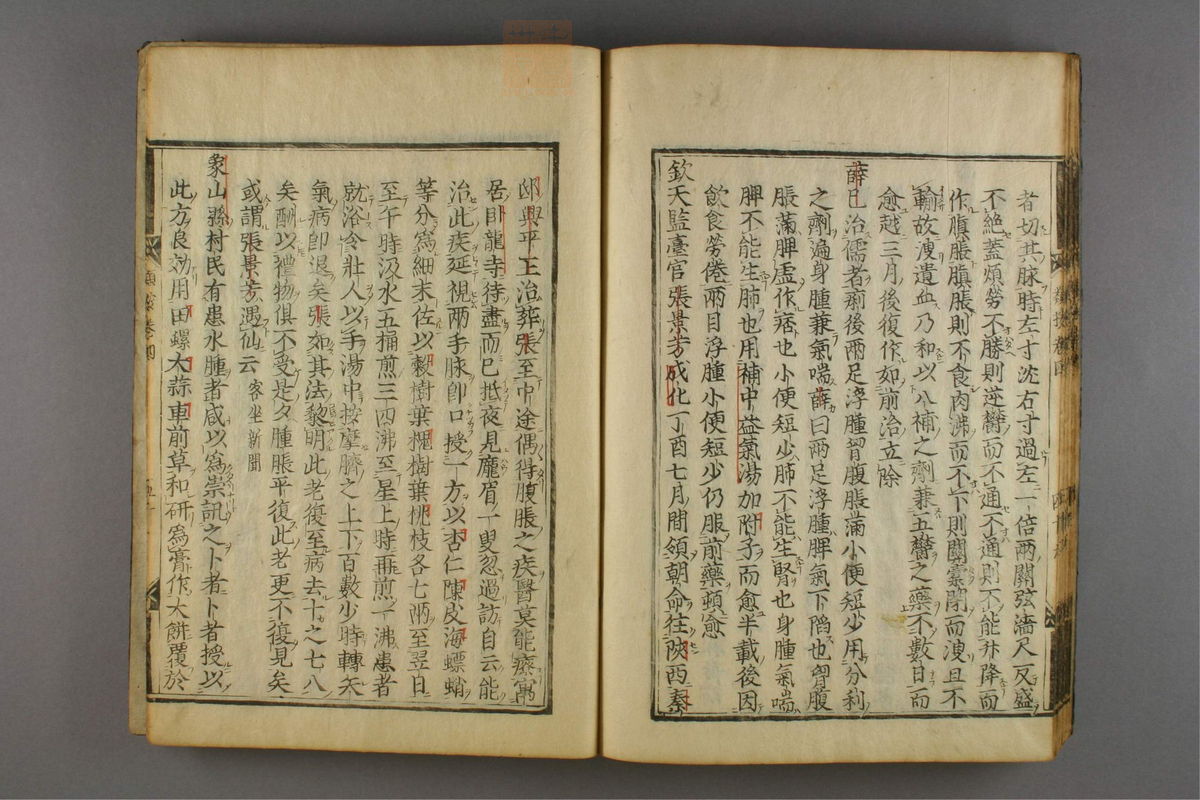 者切其脉時左寸沈右寸過左一倍兩關弦濇尺反盛
不絶蓋煩勞不勝則逆欝而不通不通則不能升降而
作腹脹膹脹則不食肉沸而不下則關橐閉而溲且不
輸故溲遺血乃和以八補之劑兼五欝之藥不數日而
愈越三月後復作如前治立除
薛已治儒者痢後兩足浮腫胷腹脹滿小便短少用分利
之劑遍身腫兼氣喘薛曰兩足浮腫脾氣下陷也胷腹
脹滿脾虚作痞也小便短少肺不能生腎也身腫氣喘
脾不能生肺也用補中益氣湯加附子而愈半載後因
飲食勞倦兩目浮腫小便短少仍服前藥頓愈
欽天監臺官張景芳成化丁酉七月間領朝命徃陜西秦
邸興平王治葬張至中途偶得腹脹之疾醫莫能療寓
居卧龍寺待盡而已抵夜見龐眉一叟忽過訪自云能
治此疾延視兩手脉卽口授一方以杏仁陳皮海螵蛸
等分爲細末佐以穀樹葉槐樹葉桃枝各七兩至翌日
至午時汲水五桶煎三四沸至星上時再煎一沸患者
就浴令壯人以手湯中按摩臍之上下百數少時轉矢
氣病卽退矣張如其法黎明此老復至病去十之七八
矣酬以禮物俱不受是夕腫脹平復此老更不復見矣
或謂張景芳遇仙云 客坐新聞
象山縣村民有患水腫者咸以爲祟訊之卜者卜者授以
此方良効用田螺大蒜車前草和研爲膏作大餅覆於